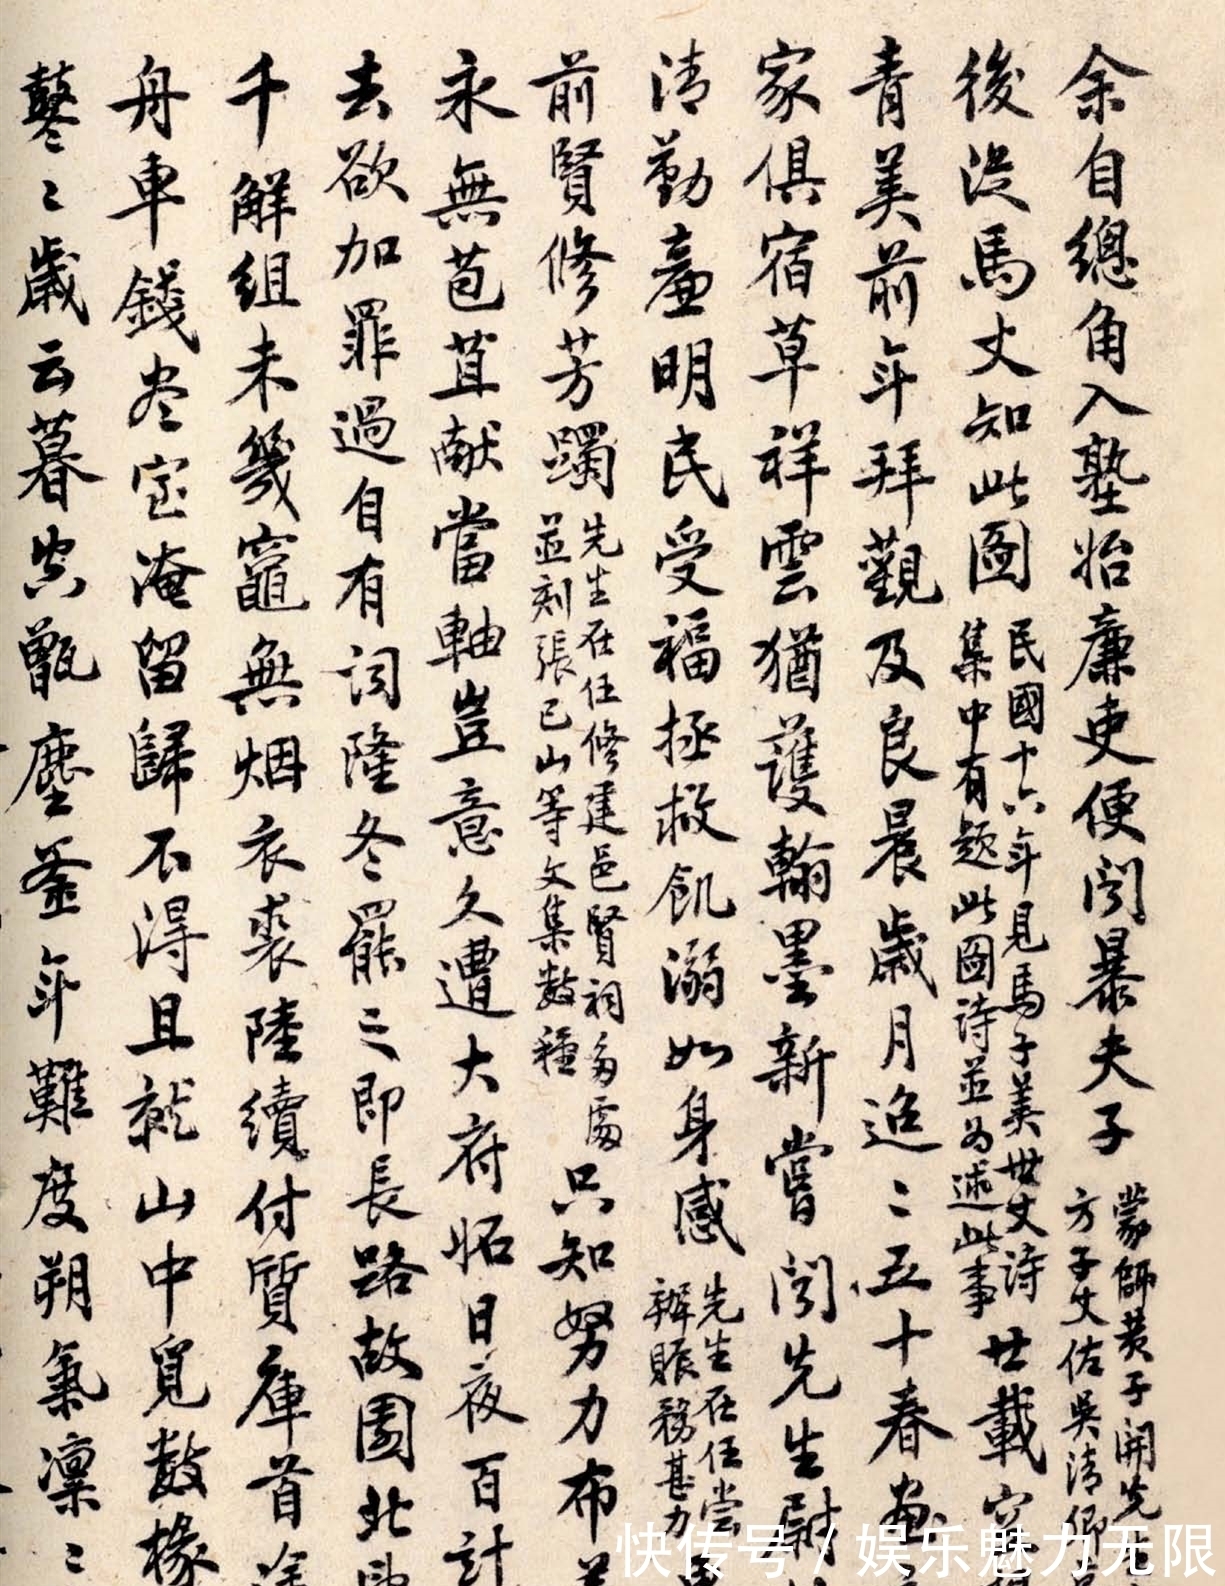 余自總角入塾始廉吏便闻暴夫子蒙師黄子開先生方子丈佐吳清卿
後从馬丈知此圖民國十六年見馬子美世丈詩集中有題此圖詩並为述此事廿載
青美前年拜觀及良晨歲月迢〻五十春画
家俱宿草祥雲猶護翰墨新嘗闻先生尉
清勤廉明民受福拯救飢溺如身感先生在任嘗辦賑務甚力
前賢修芳躅先生在任修建邑賢祠多處並刻張已山等文集數種只知努力布
永無苞苴献當軸豈意久遭大府妬日夜百計
去欲加罪過自有词隆冬罷之即長路故園北
千解組未幾竈無烟衣裘陸續付質庫首途
舟車錢尽室淹留歸不得且就山中覓數椽
鼕〻歲云暮突甑塵釜年難度朔氣凛〻
快传号 / 娱乐魅力无限